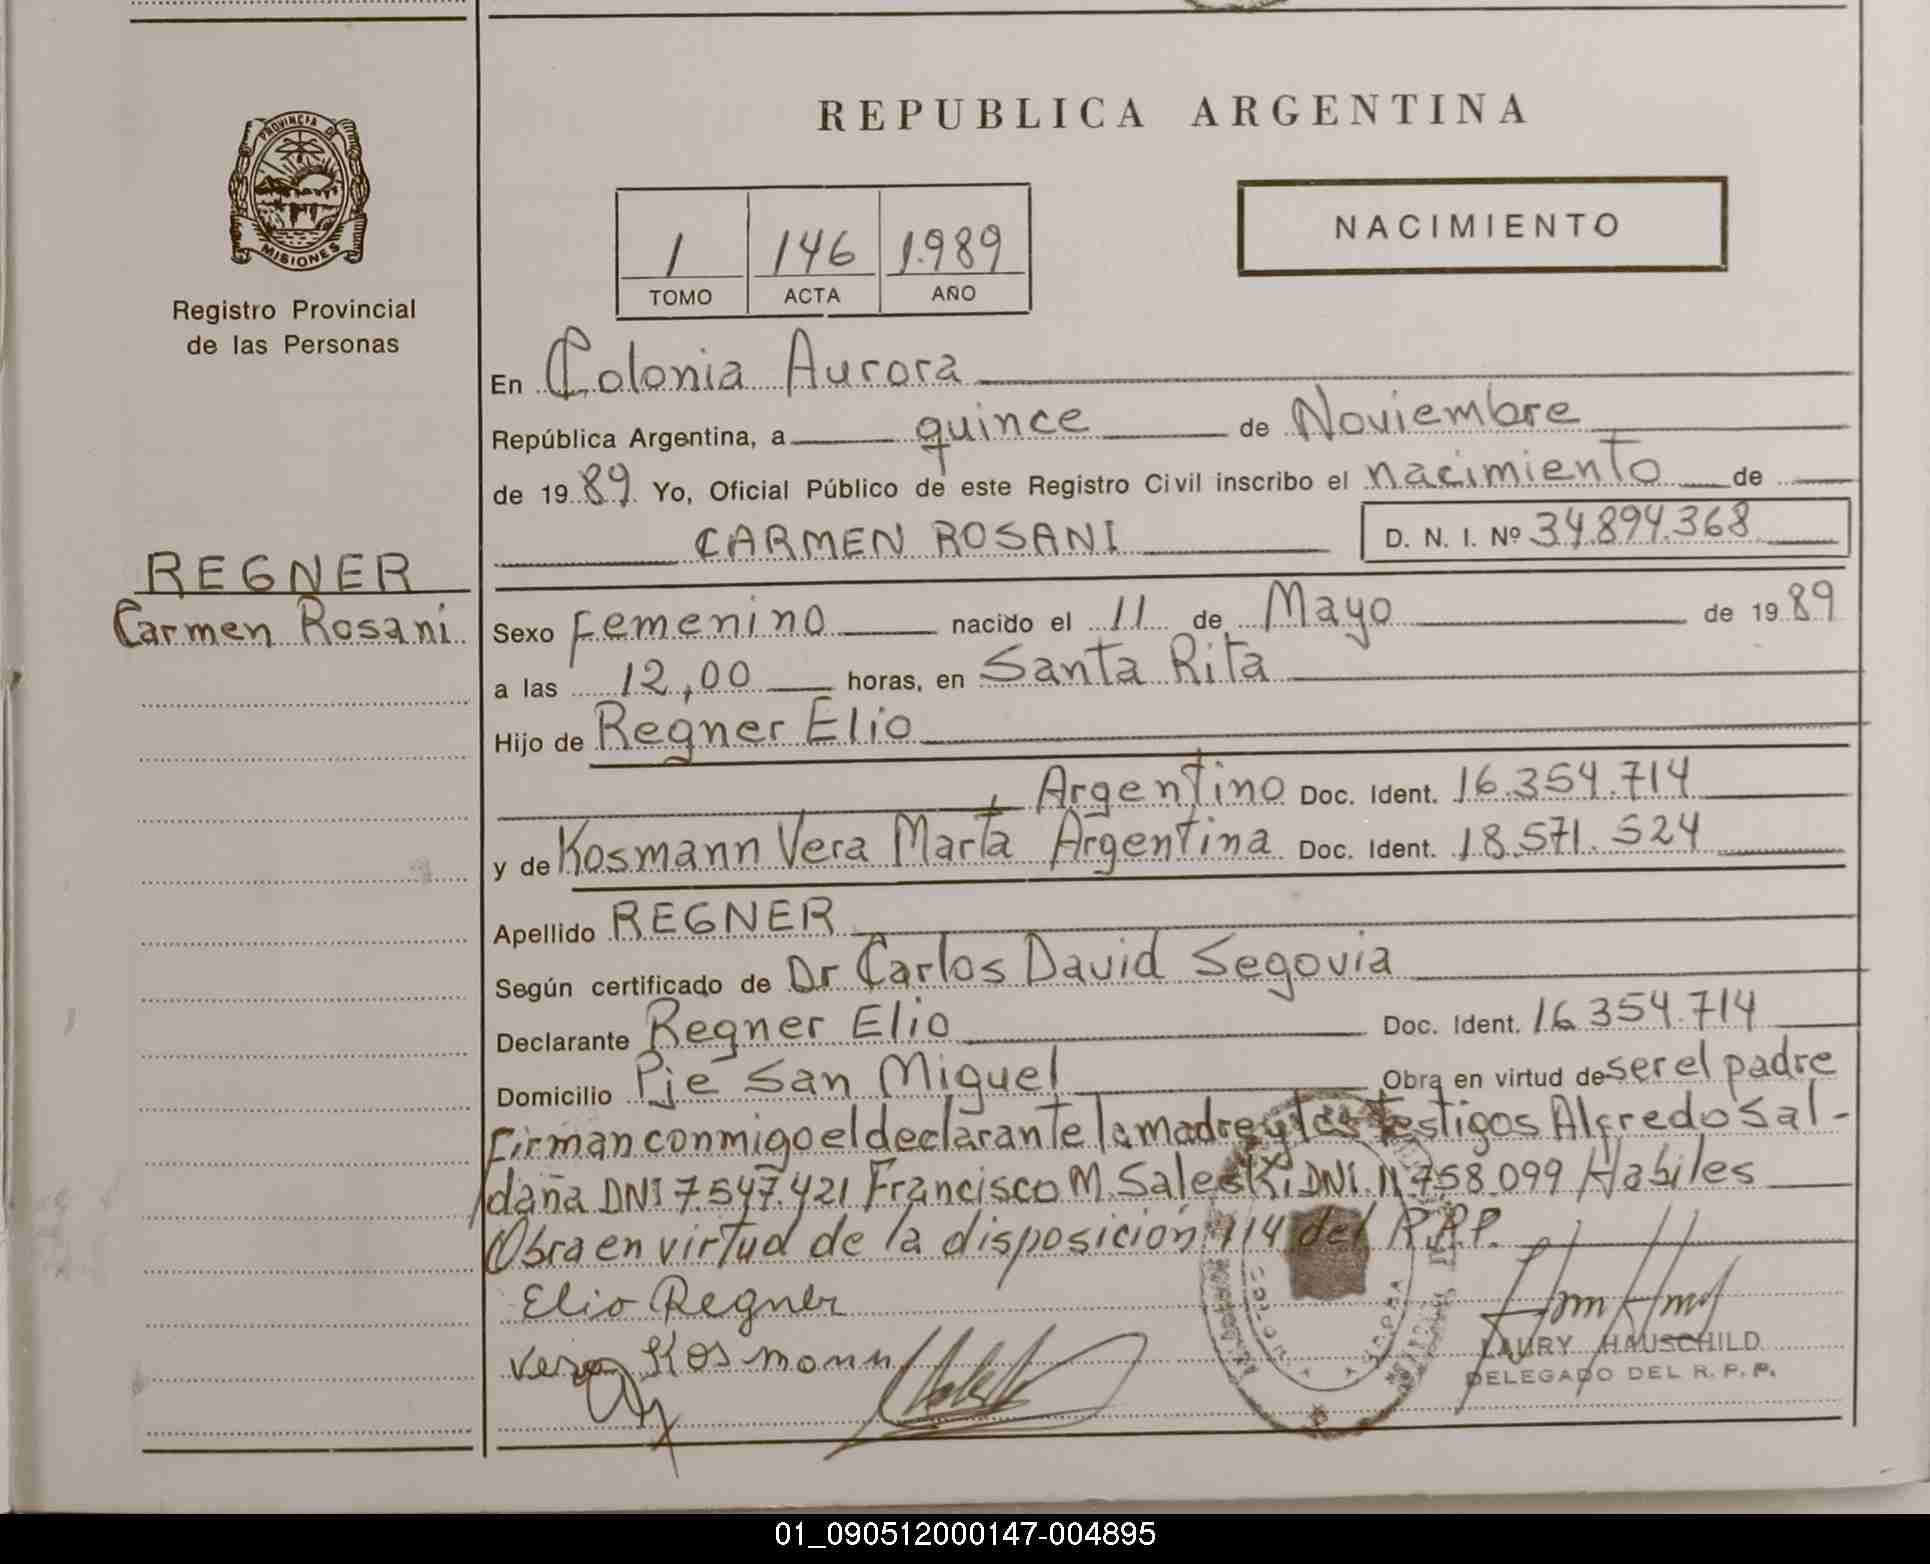 REPUBLICA ARGENTINA
PROVINCIA DE
MISIONES
Registro Provincial
de las Personas
1 146 1.989
TOMO ACTA AÑO
NACIMIENTO
En Colonia Aurora
República Argentina, a quince de Noviembre
de 1989 Yo, Oficial Público de este Registro Civil inscribo el nacimiento de
CARMEN ROSANI D. N. I. Nº 34.894.368
REGNER
Carmen Rosani
Sexo Femenino nacido el 11 de Mayo de 1989
a las 12,00 horas, en Santa Rita
Hijo de Regner Elio
Argentino Doc. Ident. 16.354.714
y de Kosmann Vera Marta Argentina Doc. Ident. 18.571.524
Apellido REGNER
Según certificado de Dr Carlos David Segovia
Declarante Regner Elio Doc. Ident. 16.354.714
Domicilio Pje San Miguel Obra en virtud de ser el padre
Firman conmigo el declarante la madre y los testigos Alfredo Sal-
daña DNI 7.547.421 Francisco M. Saleski DNI. 11.758.099 Habiles
Obra en virtud de la disposición 114 del R.P.P.
Elio Regner
Vera Kosmann
LAURY HAUSCHILD
DELEGADO DEL R. P. P.
01_090512000147-004895